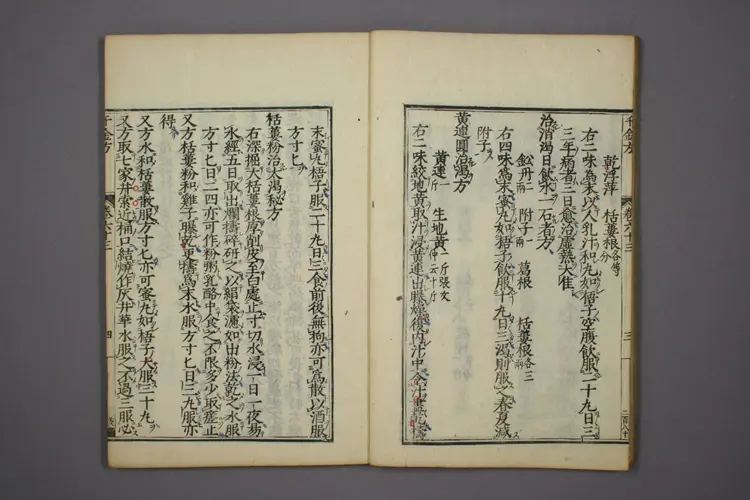 千金方　卷六十三　三
乾浮萍　栝蔞根各等分
右二味為末以人乳汁和丸如梧子空腹飲服二十九日三
三年病者三日愈治虛熱大佳
治消渴日飲水一石者方
鈆丹二兩　附子一兩　葛根　栝蔞根各三兩
右四味為末蜜丸如梧子飲服十九日三渴則服之春夏減
附子
黃連圓治渴方
黃連一斤　生地黃一斤張文仲云十斤
右二味絞地黃取汁浸黃連出曝燥復內汁中令汁盡乾擣
末蜜丸梧子服二十九日三食前後無拘亦可為散以酒服
方寸匕
栝蔞粉治大渴秘方
右深掘大栝蔞根厚削皮至白處止寸切水浸一日一夜易
水經五日取出爛擣碎研之以絹袋濾如出粉法乾之水服
方寸匕日三四亦可作粉粥乳酪中食之不限多少取瘥止
又方栝蔞粉和雞子曝乾更擣為末水服方寸匕日三丸服亦
得
又方水和栝蔞散服方寸匕亦可蜜丸如梧子大服三十九
又方取七家井索近桶口結燒作灰井華水服之不過三服必
千金方　卷六十三　四